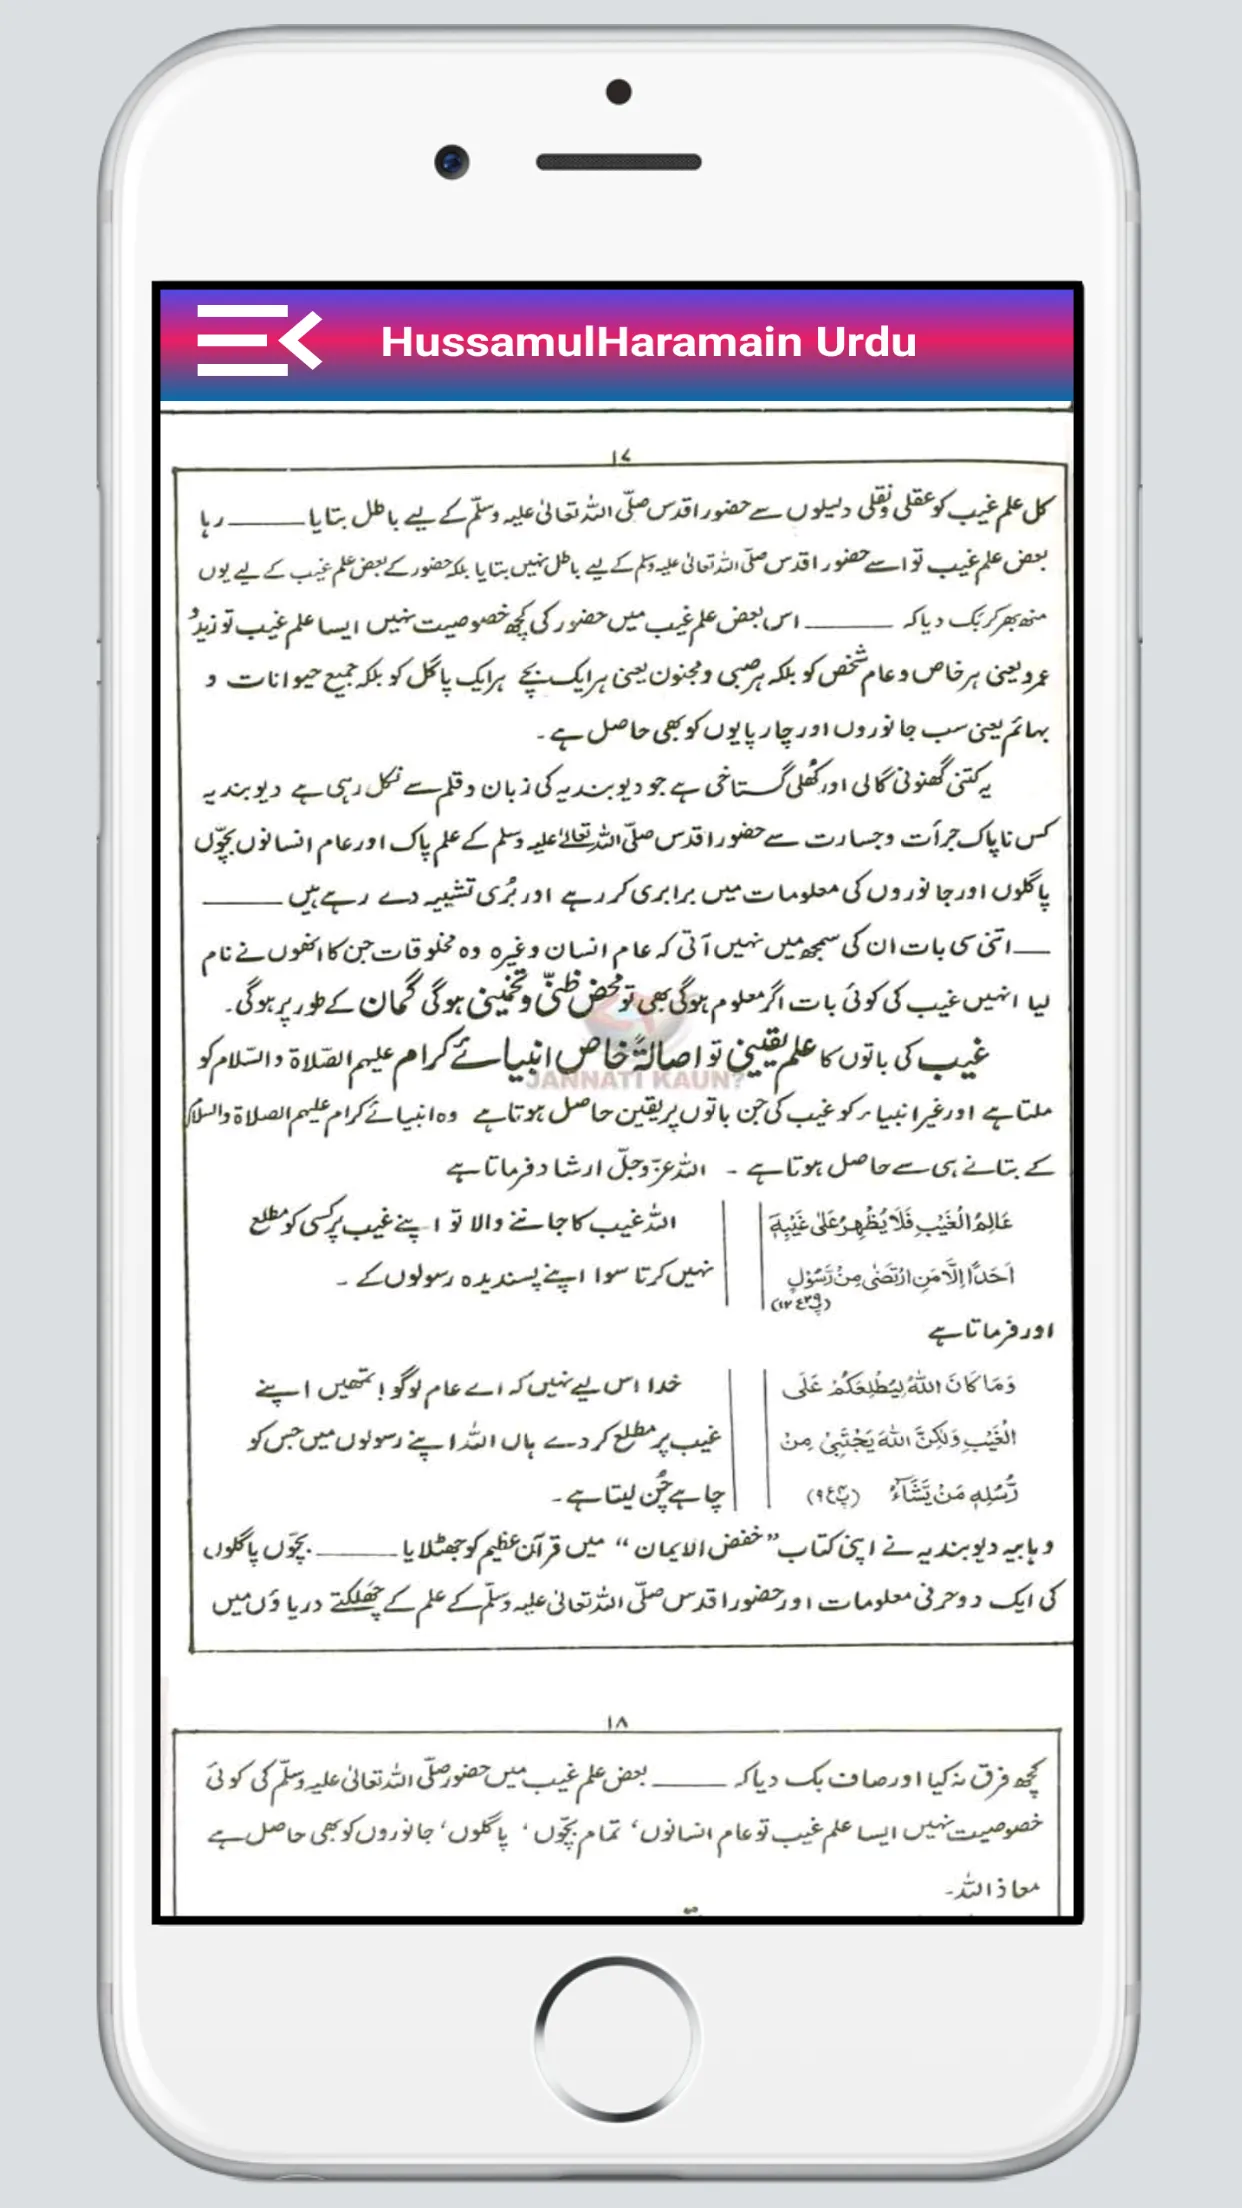 HussamulHaramain Urdu
۱۷
کل علم غیب کو عقلی و نقلی دلیلوں سے حضور اقدس صلّی اللہ تعالیٰ علیہ وسلّم کے لیے باطل بتایا ـــــــ رہا
بعض علم غیب تو اسے حضور اقدس صلّی اللہ تعالیٰ علیہ وسلم کے لیے باطل نہیں بتایا بلکہ حضور کے بعض علم غیب کے لیے یوں
منھ بھر کر بک دیا کہ ـــــــ اس بعض علم غیب میں حضور کی کچھ خصوصیت نہیں ایسا علم غیب تو زید و
عمرو یعنی ہر خاص و عام شخص کو بلکہ ہر صبی و مجنون یعنی ہر ایک بچے ہر ایک پاگل کو بلکہ جمیع حیوانات و
بہائم یعنی سب جانوروں اور چارپایوں کو بھی حاصل ہے ۔
یہ کتنی گھنونی گالی اور کُھلی گستاخی ہے جو دیوبندیہ کی زبان و قلم سے نکل رہی ہے دیوبندیہ
کس ناپاک جرأت و جسارت سے حضور اقدس صلّی اللہ تعالےٰ علیہ وسلم کے علم پاک اور عام انسانوں بچّوں
پاگلوں اور جانوروں کی معلومات میں برابری کر رہے اور بُری تشبیہ دے رہے ہیں ـــــــ
ـــــ اتنی سی بات ان کی سمجھ میں نہیں آتی کہ عام انسان وغیرہ وہ مخلوقات جن کا انھوں نے نام
لیا انہیں غیب کی کوئی بات اگر معلوم ہوگی بھی تو محض ظنّی و تخمینی ہوگی گمان کے طور پر ہوگی۔
غیب کی باتوں کا علم یقینی تو اصالۃً خاص انبیائے کرام علیہم الصّلاۃ والسّلام کو
JANNATI KAUN?
ملتا ہے اور غیر انبیاء کو غیب کی جن باتوں پر یقین حاصل ہوتا ہے وہ انبیائے کرام علیہم الصلاۃ والسلام
کے بتانے ہی سے حاصل ہوتا ہے ۔ اللہ عزّوجلّ ارشاد فرماتا ہے
عَالِمُ الْغَيْبِ فَلَا يُظْهِرُ عَلٰى غَيْبِهٖٓ
اللہ غیب کا جاننے والا تو اپنے غیب پر کسی کو مطلع
اَحَدًا اِلَّا مَنِ ارْتَضٰى مِنْ رَّسُوْلٍ
نہیں کرتا سوا اپنے پسندیدہ رسولوں کے ۔
(پ۲۹ع۱۲)
اور فرماتا ہے
وَمَا كَانَ اللّٰهُ لِيُطْلِعَكُمْ عَلَى
خدا اس لیے نہیں کہ اے عام لوگو! تمھیں اپنے
الْغَيْبِ وَلٰكِنَّ اللّٰهَ يَجْتَبِيْ مِنْ
غیب پر مطلع کر دے ہاں اللہ اپنے رسولوں میں جس کو
رُّسُلِهٖ مَنْ يَّشَآءُ (پ۴ع۹)
چاہے چُن لیتا ہے ۔
وہابیہ دیوبندیہ نے اپنی کتاب ”خفض الایمان“ میں قرآن عظیم کو جھٹلایا ـــــــ بچّوں پاگلوں
کی ایک دو حرفی معلومات اور حضور اقدس صلّی اللہ تعالیٰ علیہ وسلّم کے علم کے چَھلکتے دریاؤں میں
۱۸
کچھ فرق نہ کیا اور صاف بک دیا کہ ـــــــ بعض علم غیب میں حضور صلّی اللہ تعالیٰ علیہ وسلّم کی کوئی
خصوصیت نہیں ایسا علم غیب تو عام انسانوں، تمام بچّوں، پاگلوں، جانوروں کو بھی حاصل ہے
معاذ اللہ ۔